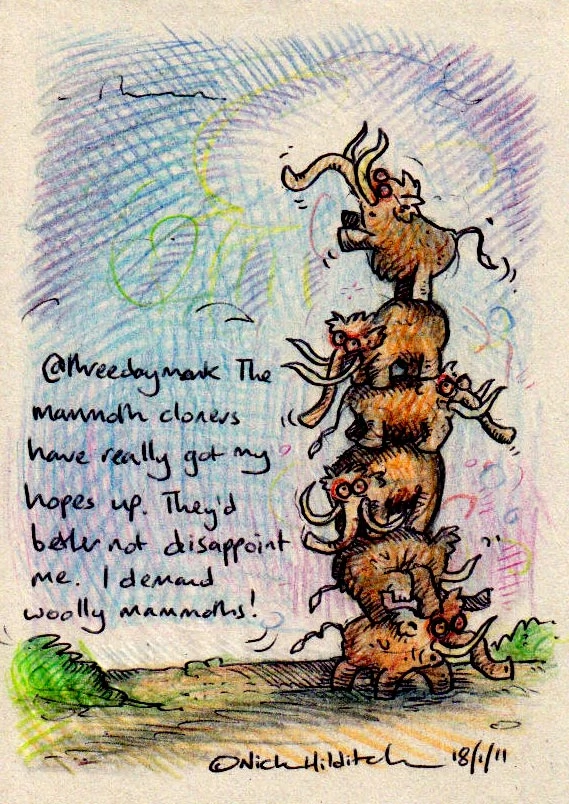 @threedaymonk The
mammoth cloners
have really got my
hopes up. They'd
better not disappoint
me. I demand
woolly mammoths!
©Nick Hilditch 18/1/11